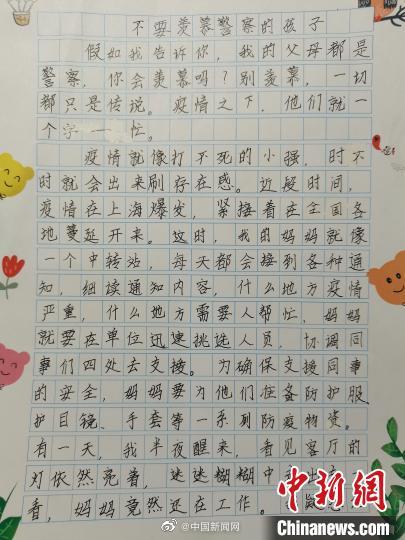 不要羡慕警察的孩子
假如我告诉你，我的父母都是
警察，你会羡慕吗？别羡慕，一切
都只是传说。疫情之下，他们就一
个字——忙。
疫情就像打不死的小强，时不
时就会出来刷存在感。近段时间，
疫情在上海爆发，紧接着在全国各
地蔓延开来。这时，我的妈妈就像
一个中转站，每天都会接到各种通
知，细读通知内容，什么地方疫情
严重，什么地方需要人帮忙，妈妈
就要在单位迅速挑选人员，协调同
事们四处去支援。为确保支援同事
的安全，妈妈要为他们准备防护服
护目镜、手套等一系列防疫物资。
有一天，我半夜醒来，看见客厅的
灯依然亮着，迷迷糊糊中
看，妈妈竟然还在工作。
中新网
www.chinanews.com
@中国新闻网